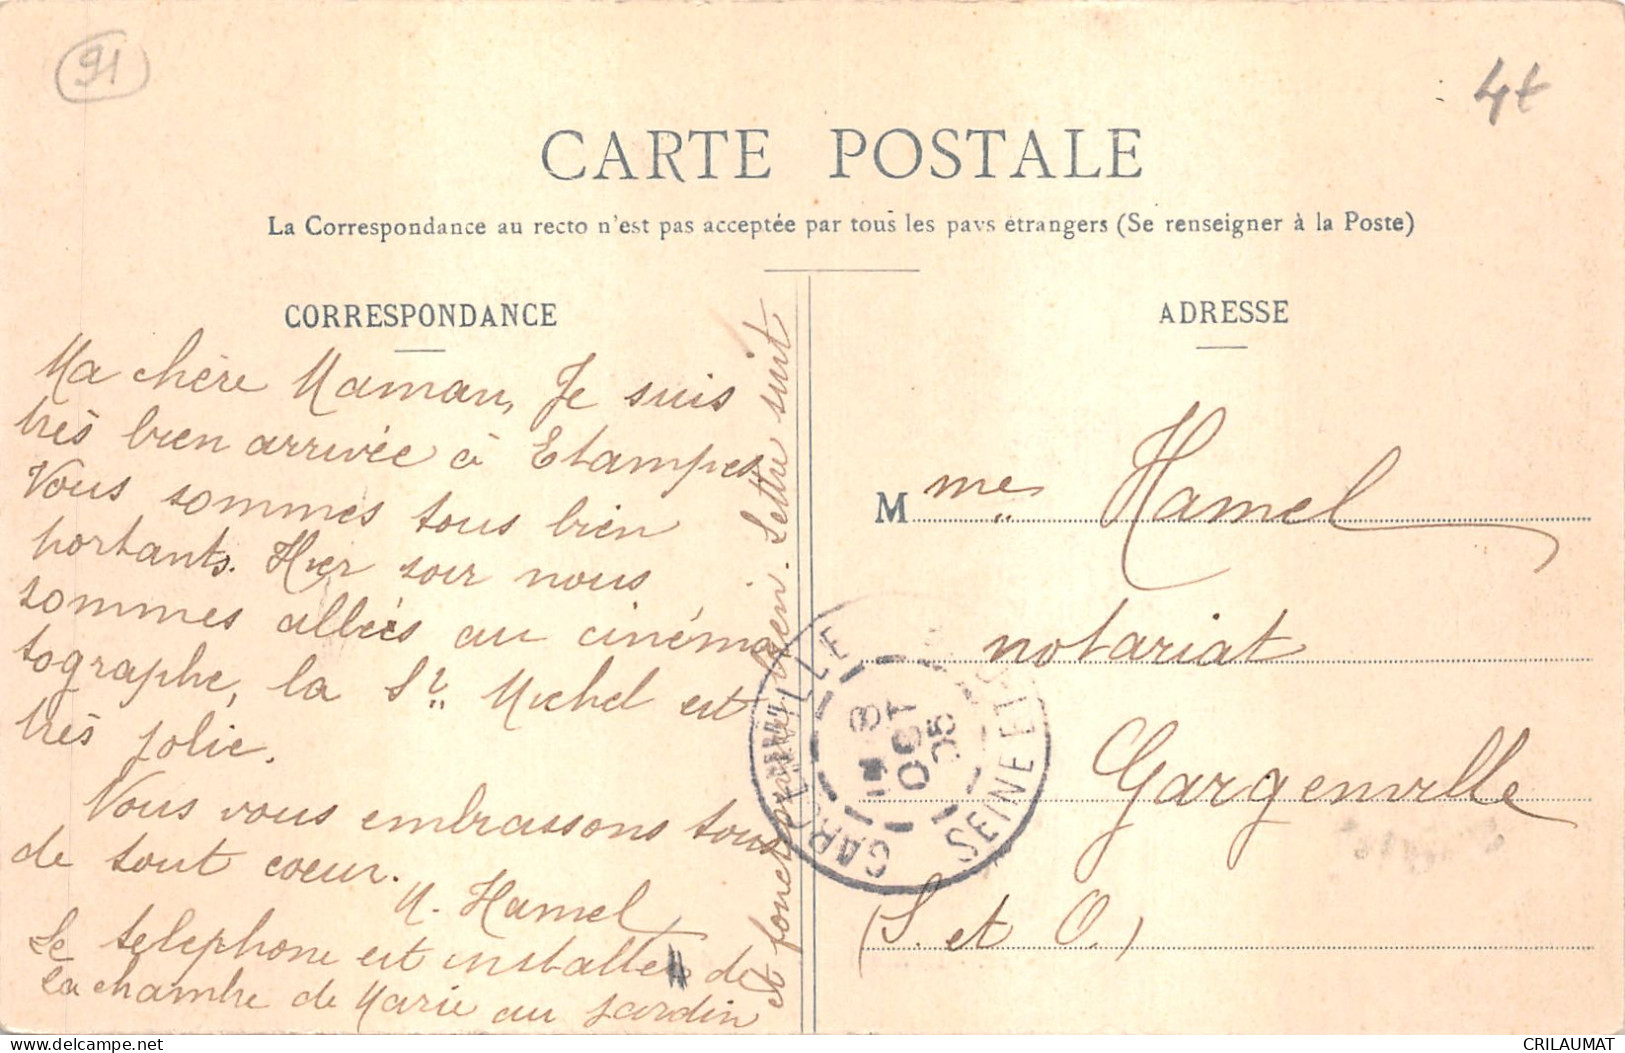 91
4t
CARTE POSTALE
La Correspondance au recto n'est pas acceptée par tous les pays étrangers (Se renseigner à la Poste)
CORRESPONDANCE
Ma chère Maman, Je suis
très bien arrivée à Etampes
Vous sommes tous bien
portants. Hier soir nous
sommes allées au cinéma
tographe, la St. Michel est
très jolie.
Nous vous embrassons tous
de tout coeur.
M. Hamel
Le telephone est installé de
la chambre de Marie au jardin
et fonctionne bien. Lettre suit
ADRESSE
Mme Hamel
notariat
Gargenville
(S. et O.)
GARGENVILLE
8
OCT
05
SEINE ET
www.delcampe.net
CRILAUMAT